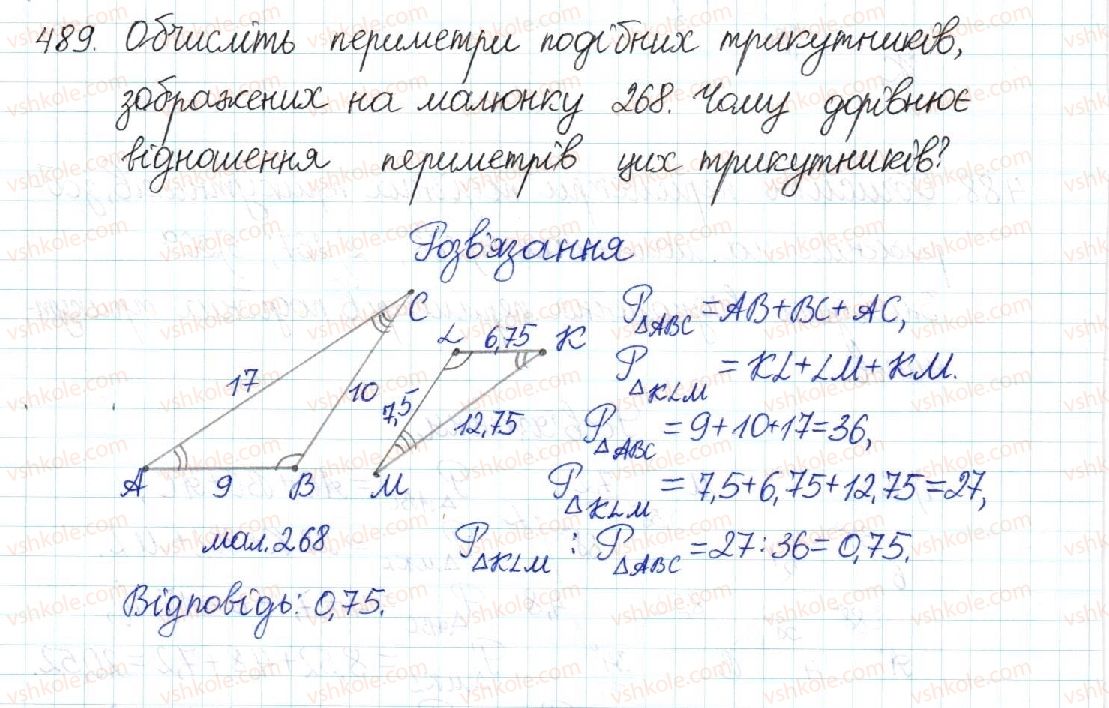 489. Обчисліть периметри подібних трикутників,
зображених на малюнку 268. Чому дорівнює
відношення периметрів цих трикутників?
Розв'язання
C
L 6,75 K
17
10
7,5
12,75
A 9 B M
мал. 268
P△ABC = AB + BC + AC,
P△KLM = KL + LM + KM.
P△ABC = 9+10+17=36,
P△KLM = 7,5+6,75+12,75=27,
P△KLM : P△ABC = 27:36= 0,75.
Відповідь: 0,75.
vshkole.com